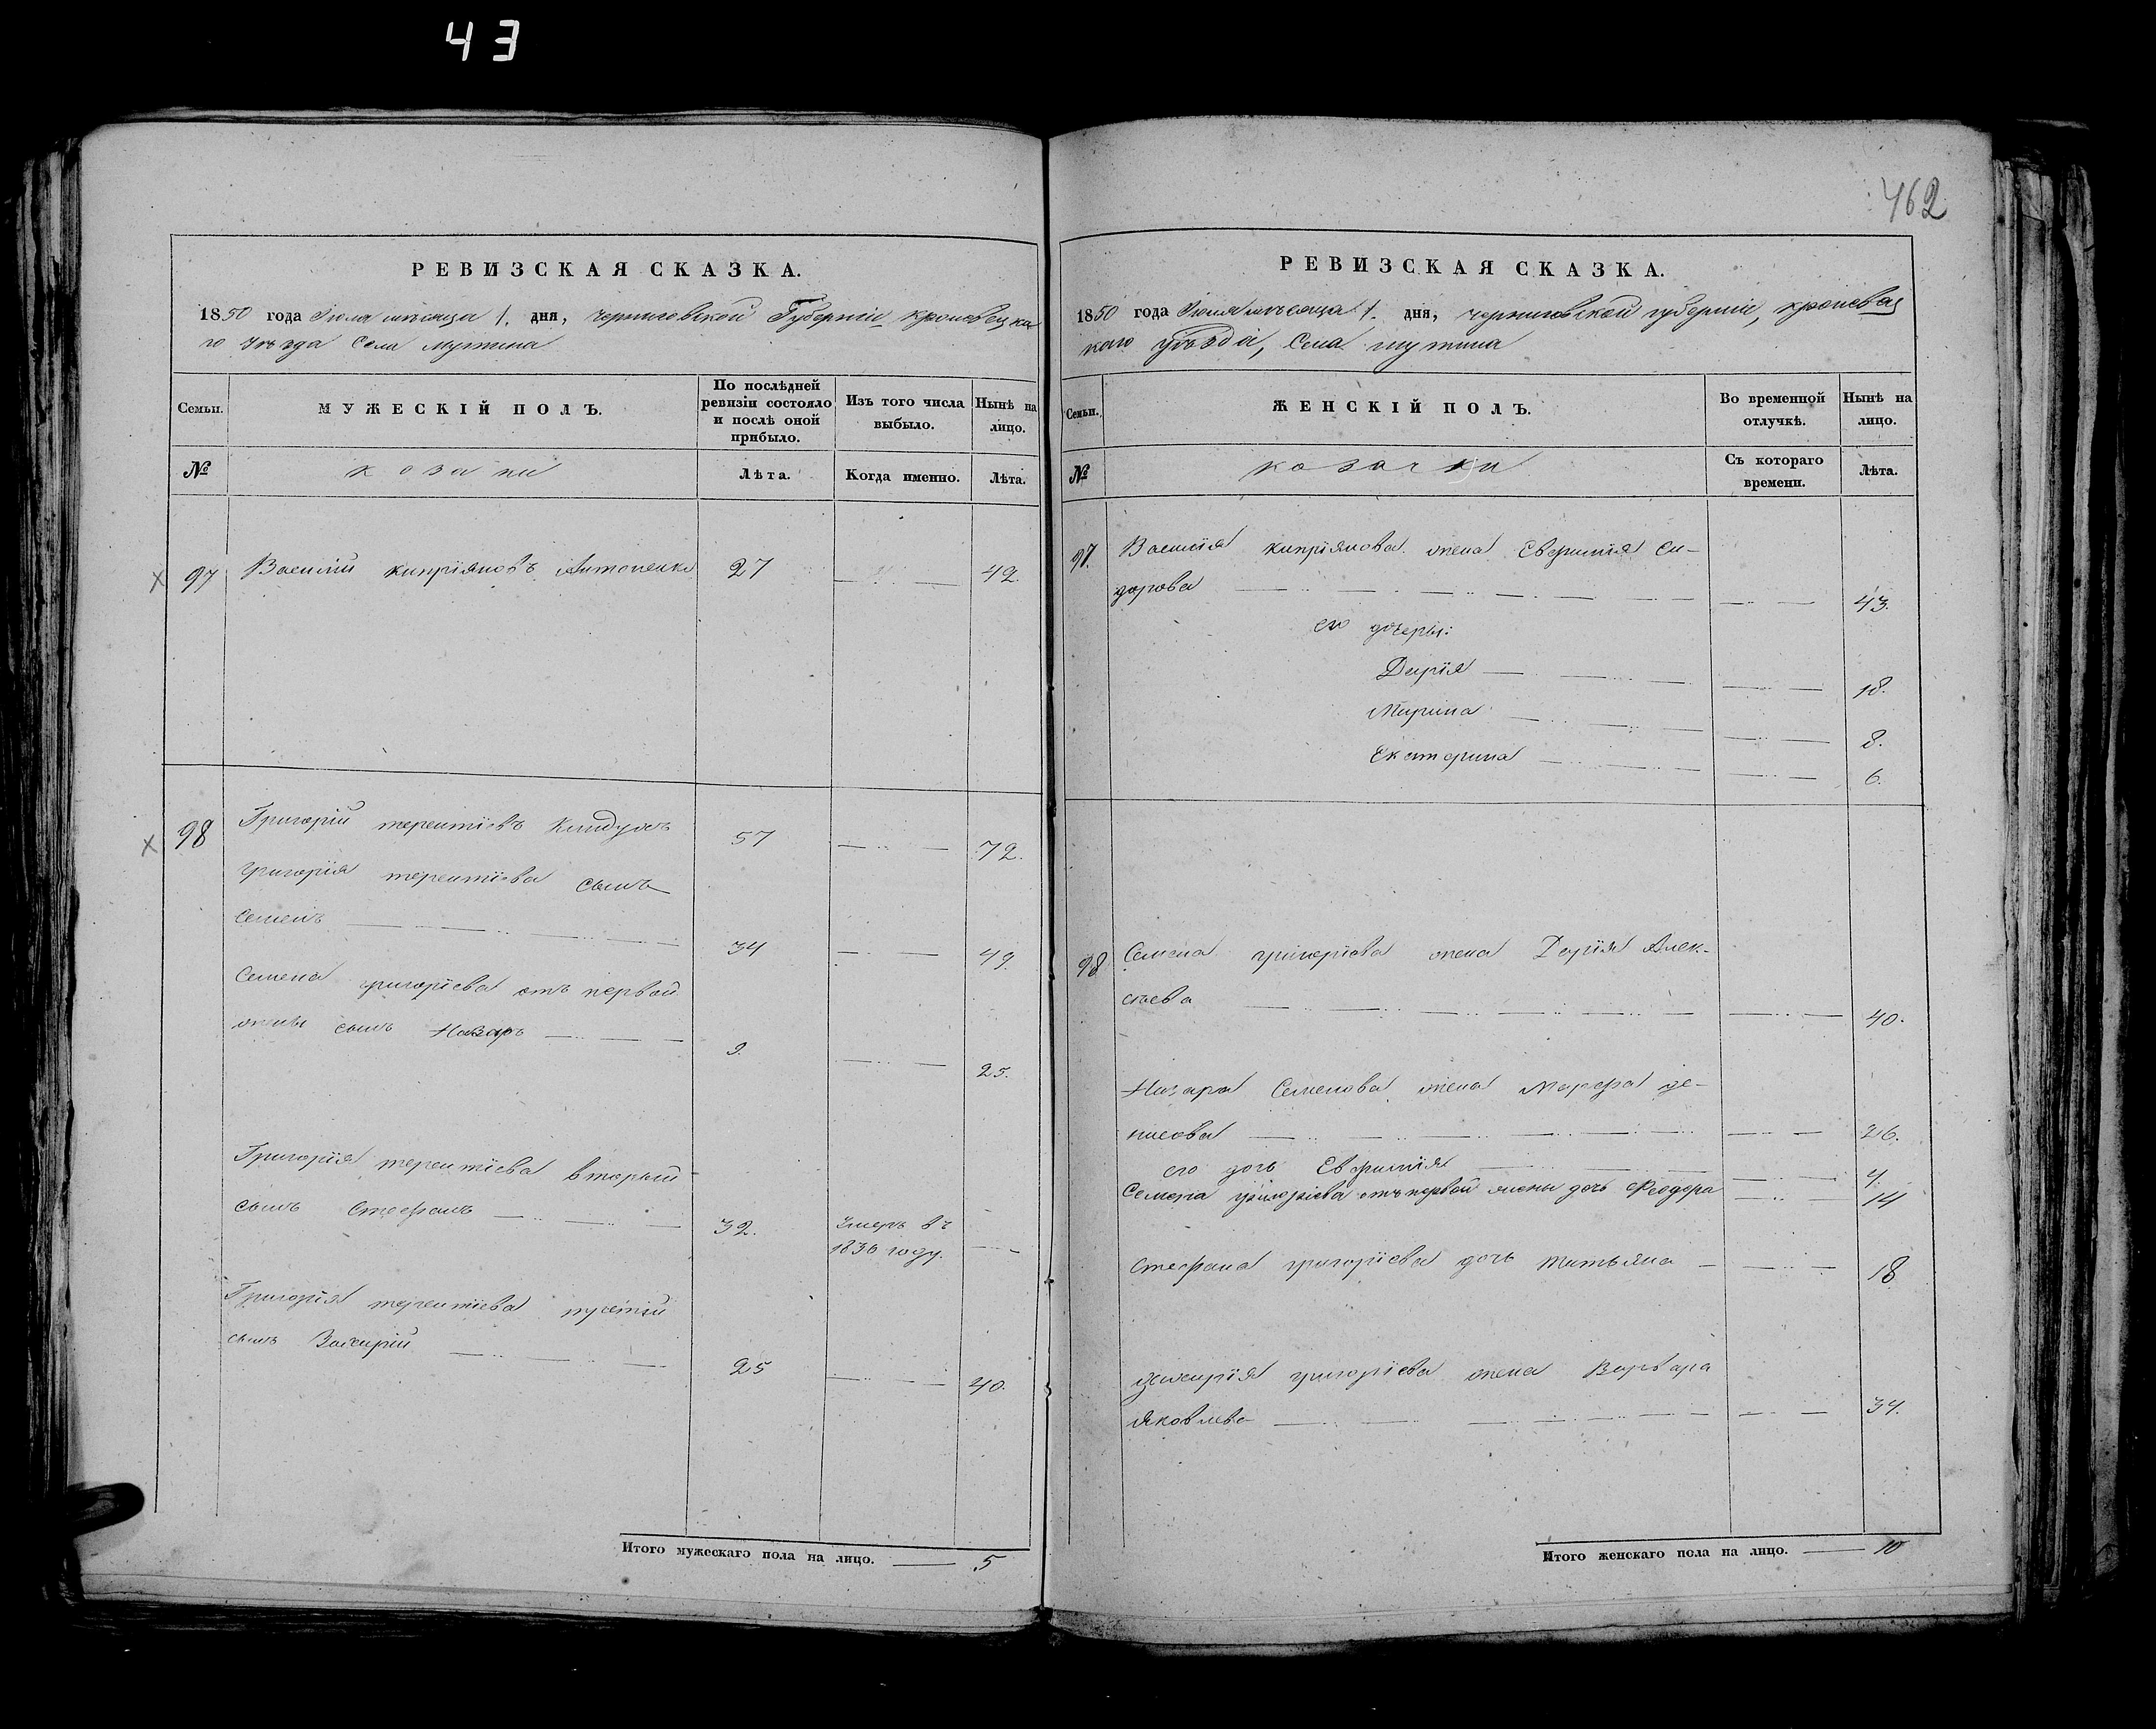 43
462
РЕВИЗСКАЯ СКАЗКА.
1850 года Июля месяца 1. дня, Черниговской Губерніи Кролевецка
го Уѣзда Села Мутина
Семьи.
МУЖЕСКІЙ ПОЛЪ.
По послѣдней ревизіи состояло и послѣ оной прибыло.
Изъ того числа выбыло.
Нынѣ на лицо.
№
козаки
Лѣта.
Когда именно.
Лѣта.
х 97 Василій Кипріяновъ Антоненко 27 42.
х 98 Григорій терентіевъ 57 72.
Григорія терентіева сынъ
Семенъ 34 49.
Семена григоріева отъ первой
жены сынъ Назаръ 9. 25.
Григорія терентіева вторый
сынъ Стефанъ 32. Умеръ въ
1836 году.
Григорія терентіева третій
сынъ 25 40.
Итого мужескаго пола на лицо. 5
РЕВИЗСКАЯ СКАЗКА.
1850 года Июля месяца 1. дня, черниговской губерніи, кролевец
каго уѣзда, Села мутина
Семьи.
ЖЕНСКІЙ ПОЛЪ.
Во временной отлучкѣ.
Нынѣ на лицо.
№
козачки
Съ котораго времени.
Лѣта.
97. Василія Кипріянова жена Евфимія Си-
дорова 43.
его дочери:
Дарія 18.
Марина 8.
Екатерина 6.
98 Семена григоріева жена Дарія Алек-
сѣева 40.
Назара Семенова жена Марфа де-
нисова 26.
его дочь Евфимія 4.
Семена григоріева отъ первой жены дочь Феодора 14
Стефана григоріева дочь татьяна 18
григоріева жена Варвара
Яковлева 34.
Итого женскаго пола на лицо. 10